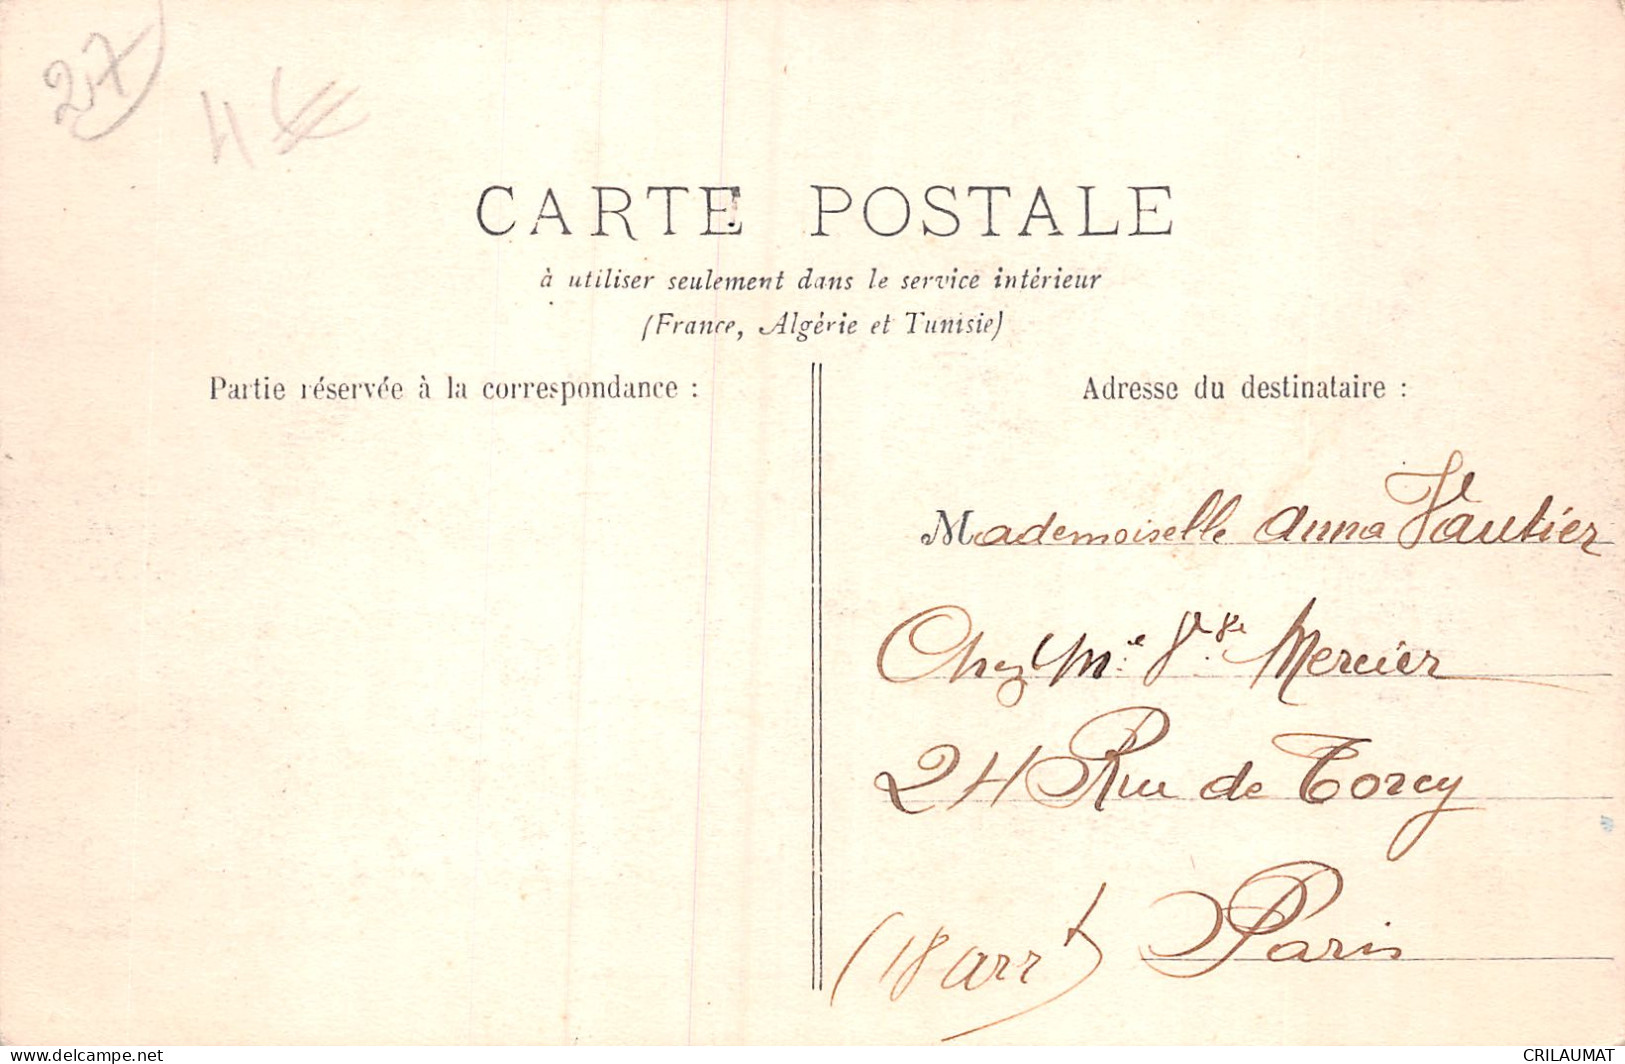 27
4€
CARTE POSTALE
à utiliser seulement dans le service intérieur
(France, Algérie et Tunisie)
Partie réservée à la correspondance :
Adresse du destinataire :
Mademoiselle Anna Vautier
Chez Mme Vve Mercier
24 Rue de Torcy
(18 arrt) Paris
www.delcampe.net
CRILAUMAT